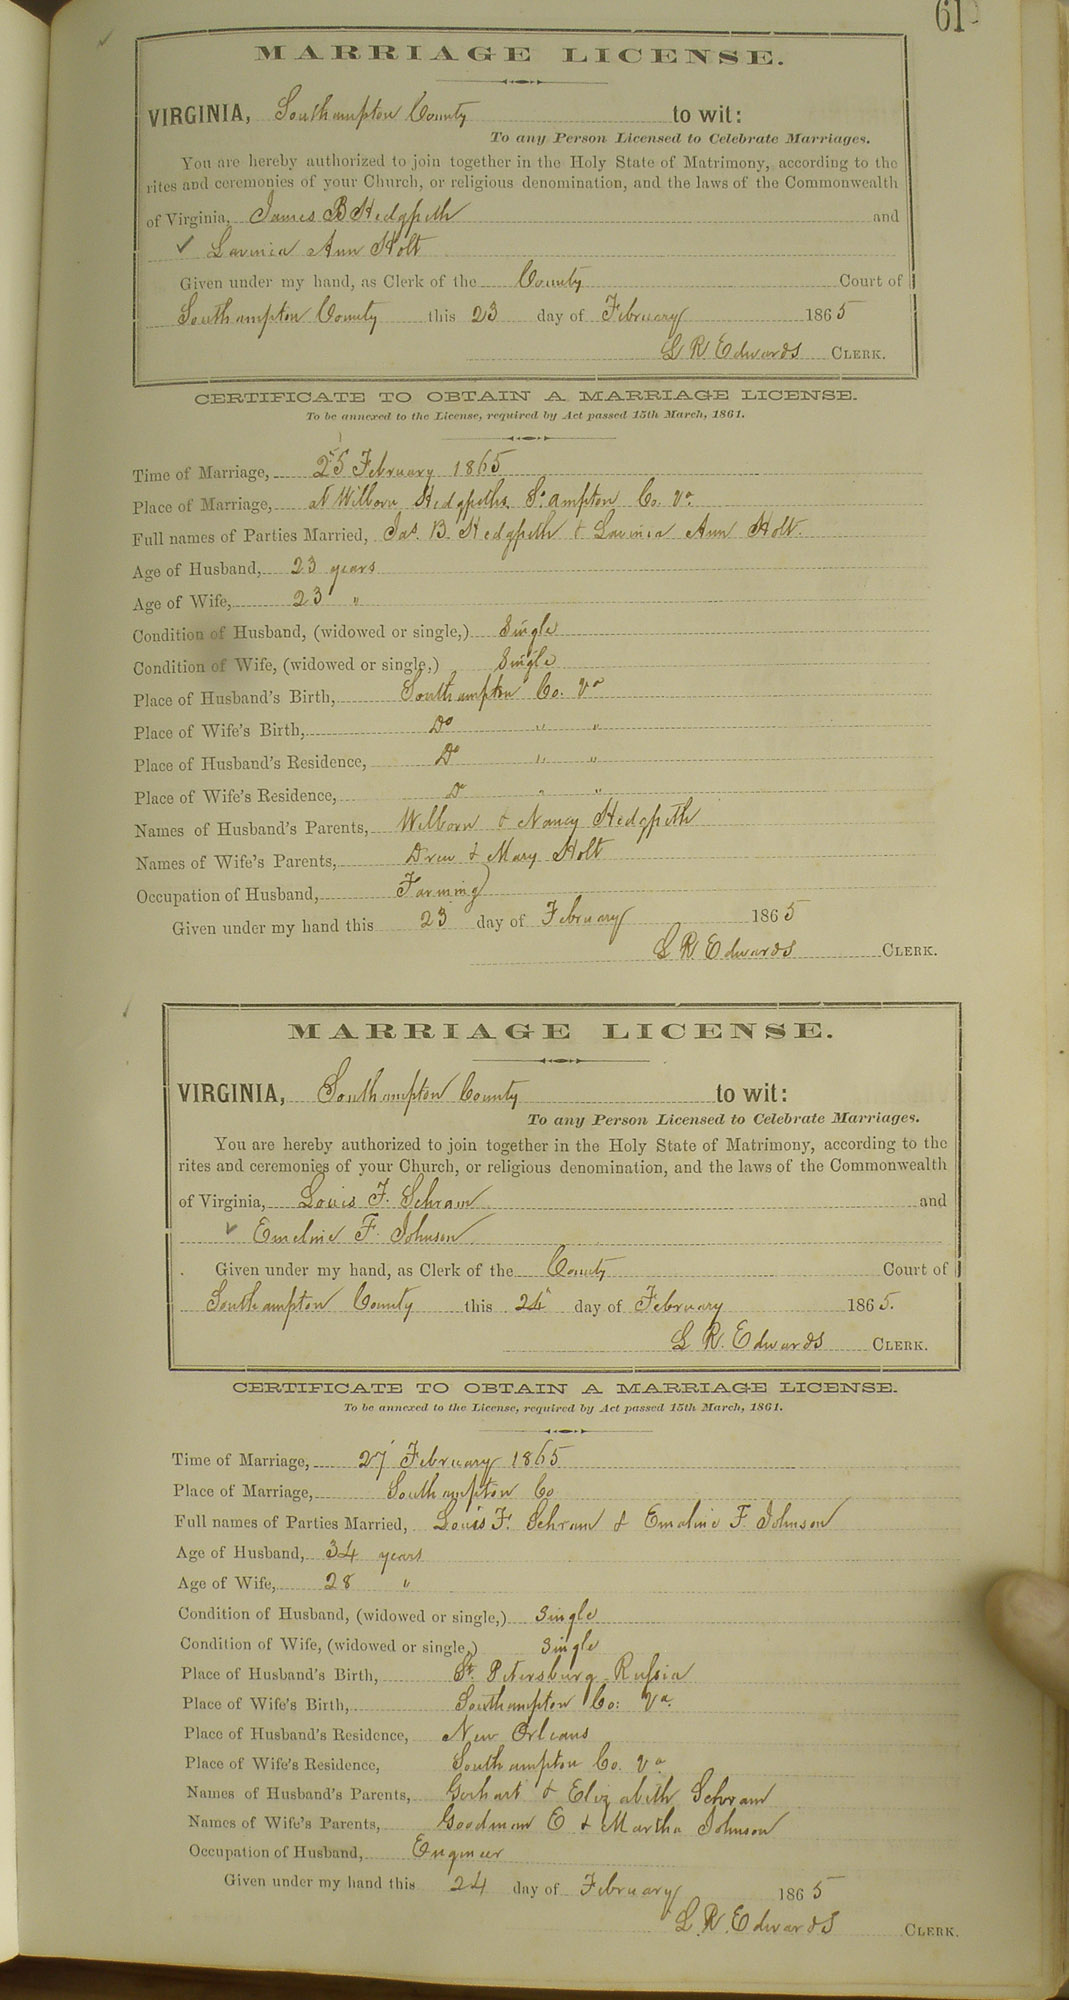 61
MARRIAGE LICENSE.
VIRGINIA, Southampton County to wit:
To any Person Licensed to Celebrate Marriages.
You are hereby authorized to join together in the Holy State of Matrimony, according to the
rites and ceremonies of your Church, or religious denomination, and the laws of the Commonwealth
of Virginia, James B Hedgpeth and
✓ Lavinia Ann Holt
Given under my hand, as Clerk of the County Court of
Southampton County this 23 day of February 1865
L R Edwards CLERK.
CERTIFICATE TO OBTAIN A MARRIAGE LICENSE.
To be annexed to the License, required by Act passed 15th March, 1861.
Time of Marriage, 25 February 1865
Place of Marriage, at Wilborn Hedgpeths, So. ampton Co. Va
Full names of Parties Married, Jas. B. Hedgpeth & Lavinia Ann Holt.
Age of Husband, 23 years
Age of Wife, 23 "
Condition of Husband, (widowed or single,) Single
Condition of Wife, (widowed or single,) Single
Place of Husband's Birth, Southampton Co. Va
Place of Wife's Birth, Do " "
Place of Husband's Residence, Do " "
Place of Wife's Residence, Do " "
Names of Husband's Parents, Wilborn & Nancy Hedgpeth
Names of Wife's Parents, Drew & Mary Holt
Occupation of Husband, Farming
Given under my hand this 23 day of February 1865
L R Edwards CLERK.
MARRIAGE LICENSE.
VIRGINIA, Southampton County to wit:
To any Person Licensed to Celebrate Marriages.
You are hereby authorized to join together in the Holy State of Matrimony, according to the
rites and ceremonies of your Church, or religious denomination, and the laws of the Commonwealth
of Virginia, Louis F. Schram and
✓ Emeline F. Johnson
Given under my hand, as Clerk of the County Court of
Southampton County this 24 day of February 1865.
L R. Edwards CLERK.
CERTIFICATE TO OBTAIN A MARRIAGE LICENSE.
To be annexed to the License, required by Act passed 15th March, 1861.
Time of Marriage, 27 February 1865
Place of Marriage, Southampton Co
Full names of Parties Married, Louis F. Schram & Emeline F. Johnson
Age of Husband, 34 years
Age of Wife, 28 "
Condition of Husband, (widowed or single,) Single
Condition of Wife, (widowed or single,) Single
Place of Husband's Birth, St. Petersburg Russia
Place of Wife's Birth, Southampton Co: Va.
Place of Husband's Residence, New Orleans
Place of Wife's Residence, Southampton Co. Va
Names of Husband's Parents, Gerhart & Elizabeth Schram
Names of Wife's Parents, Goodman E & Martha Johnson
Occupation of Husband, Engineer
Given under my hand this 24 day of February 1865
L. R. Edwards CLERK.